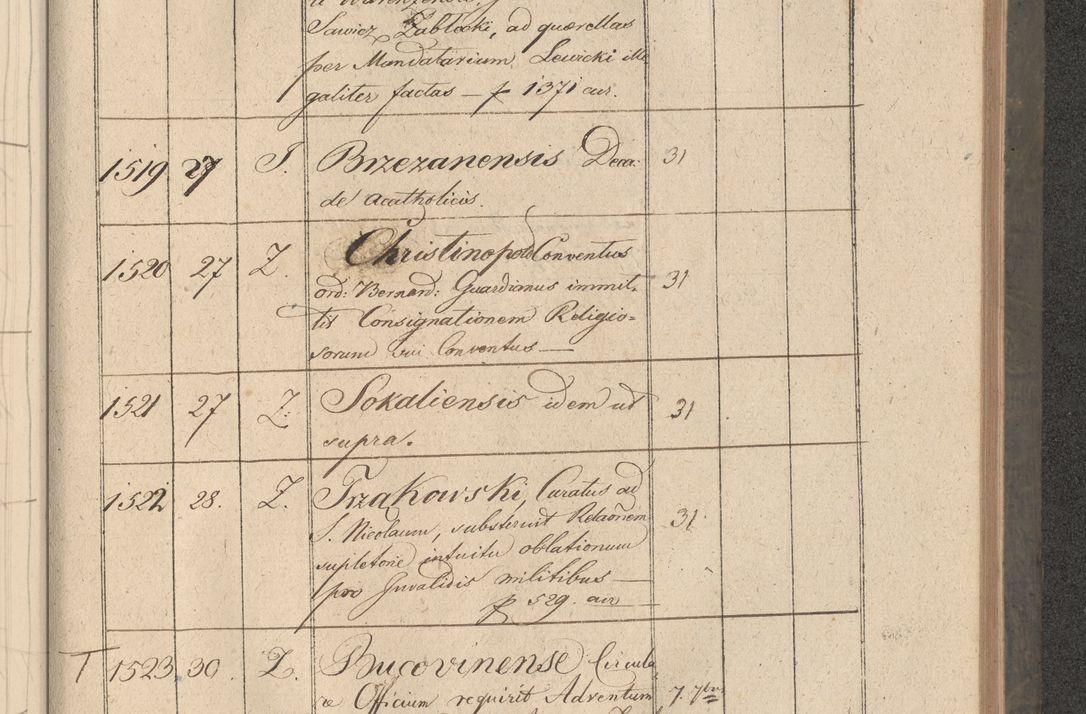 Sawicz Zabłocki, ad quærellas
per Mandatarium Lewicki ille
galiter factas — p 1371 cur.
1519 27 I. Brzezanensis Deca: 31
de Acatholicis.
1520 27 Z. Christinopol Conventus
ord: Bernard: Guardianus immit= 31
tit Consignationem Religio=
sorum sui Conventus —
1521 27 Z: Sokaliensis idem ut 31
supra.
1522 28. Z. Trzakowski, Curatus ad
S. Nicolaum, substernit Relaõnem 31
supletorie intuitu oblationum
pro Invalidis militibus —
p 529. cur
T 1523 30. Z. Bucovinense Circula
re Officium requirit Adventum 7. 7br